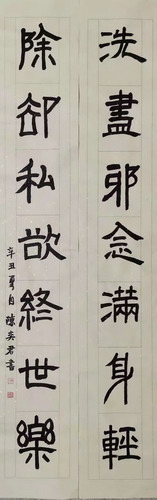 洗盡邪念滿身輕
除却私欲終世樂
辛丑夏月陳英君書